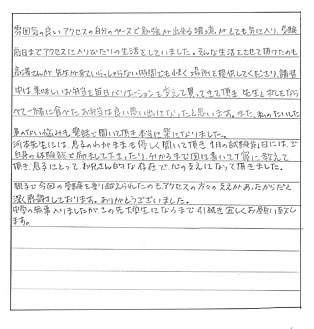 雰囲気の良いアクセスの自分のペースで勉強が出来る環境がとても気に入り、受験
前日までアクセスに入りびたりの生活をしていました。そんな生活をさせて頂けたのも
高澤さんが先生が来ていらっしゃらない時間でも快く場所を提供してくださり、講習
中は美味しいお弁当を毎日バリエーションを考えて買ってきて頂き 先生とわになってならん
べて一緒に食べたお弁当は良い思い出になったと思います。また、私のたいした
事のない悩みも電話で聞いて頂き本当に楽になりました。
河本先生には、息子のわがままも優しく聞いて頂き、1月の試験前日には、ご
自身の体験談で励まして下さったり、分かるまで図は書いて丁寧に教えて
頂き、息子にとって、お兄さん的な存在で、心の支えになって頂きました。
親子で今回の受験を乗り越えられたのもアクセスの方々の支えがあったからだと
深く感謝しております。ありがとうございました。
中学の無事入りましたが、この先大学生になるまで引続き宜しくお願い致し
ます。